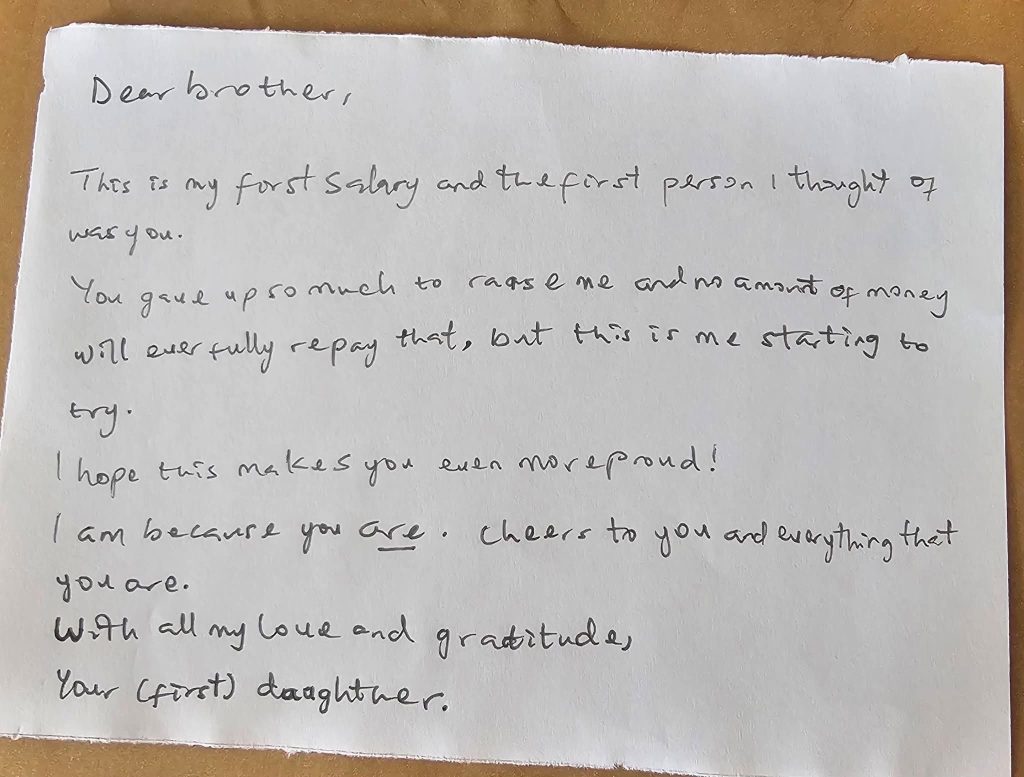 Dear brother,
This is my first salary and the first person I thought of
was you.
You gave up so much to raise me and no amount of money
will ever fully repay that, but this is me starting to
try.
I hope this makes you even more proud!
I am because you are. Cheers to you and everything that
you are.
With all my love and gratitude,
Your (first) daaghther.